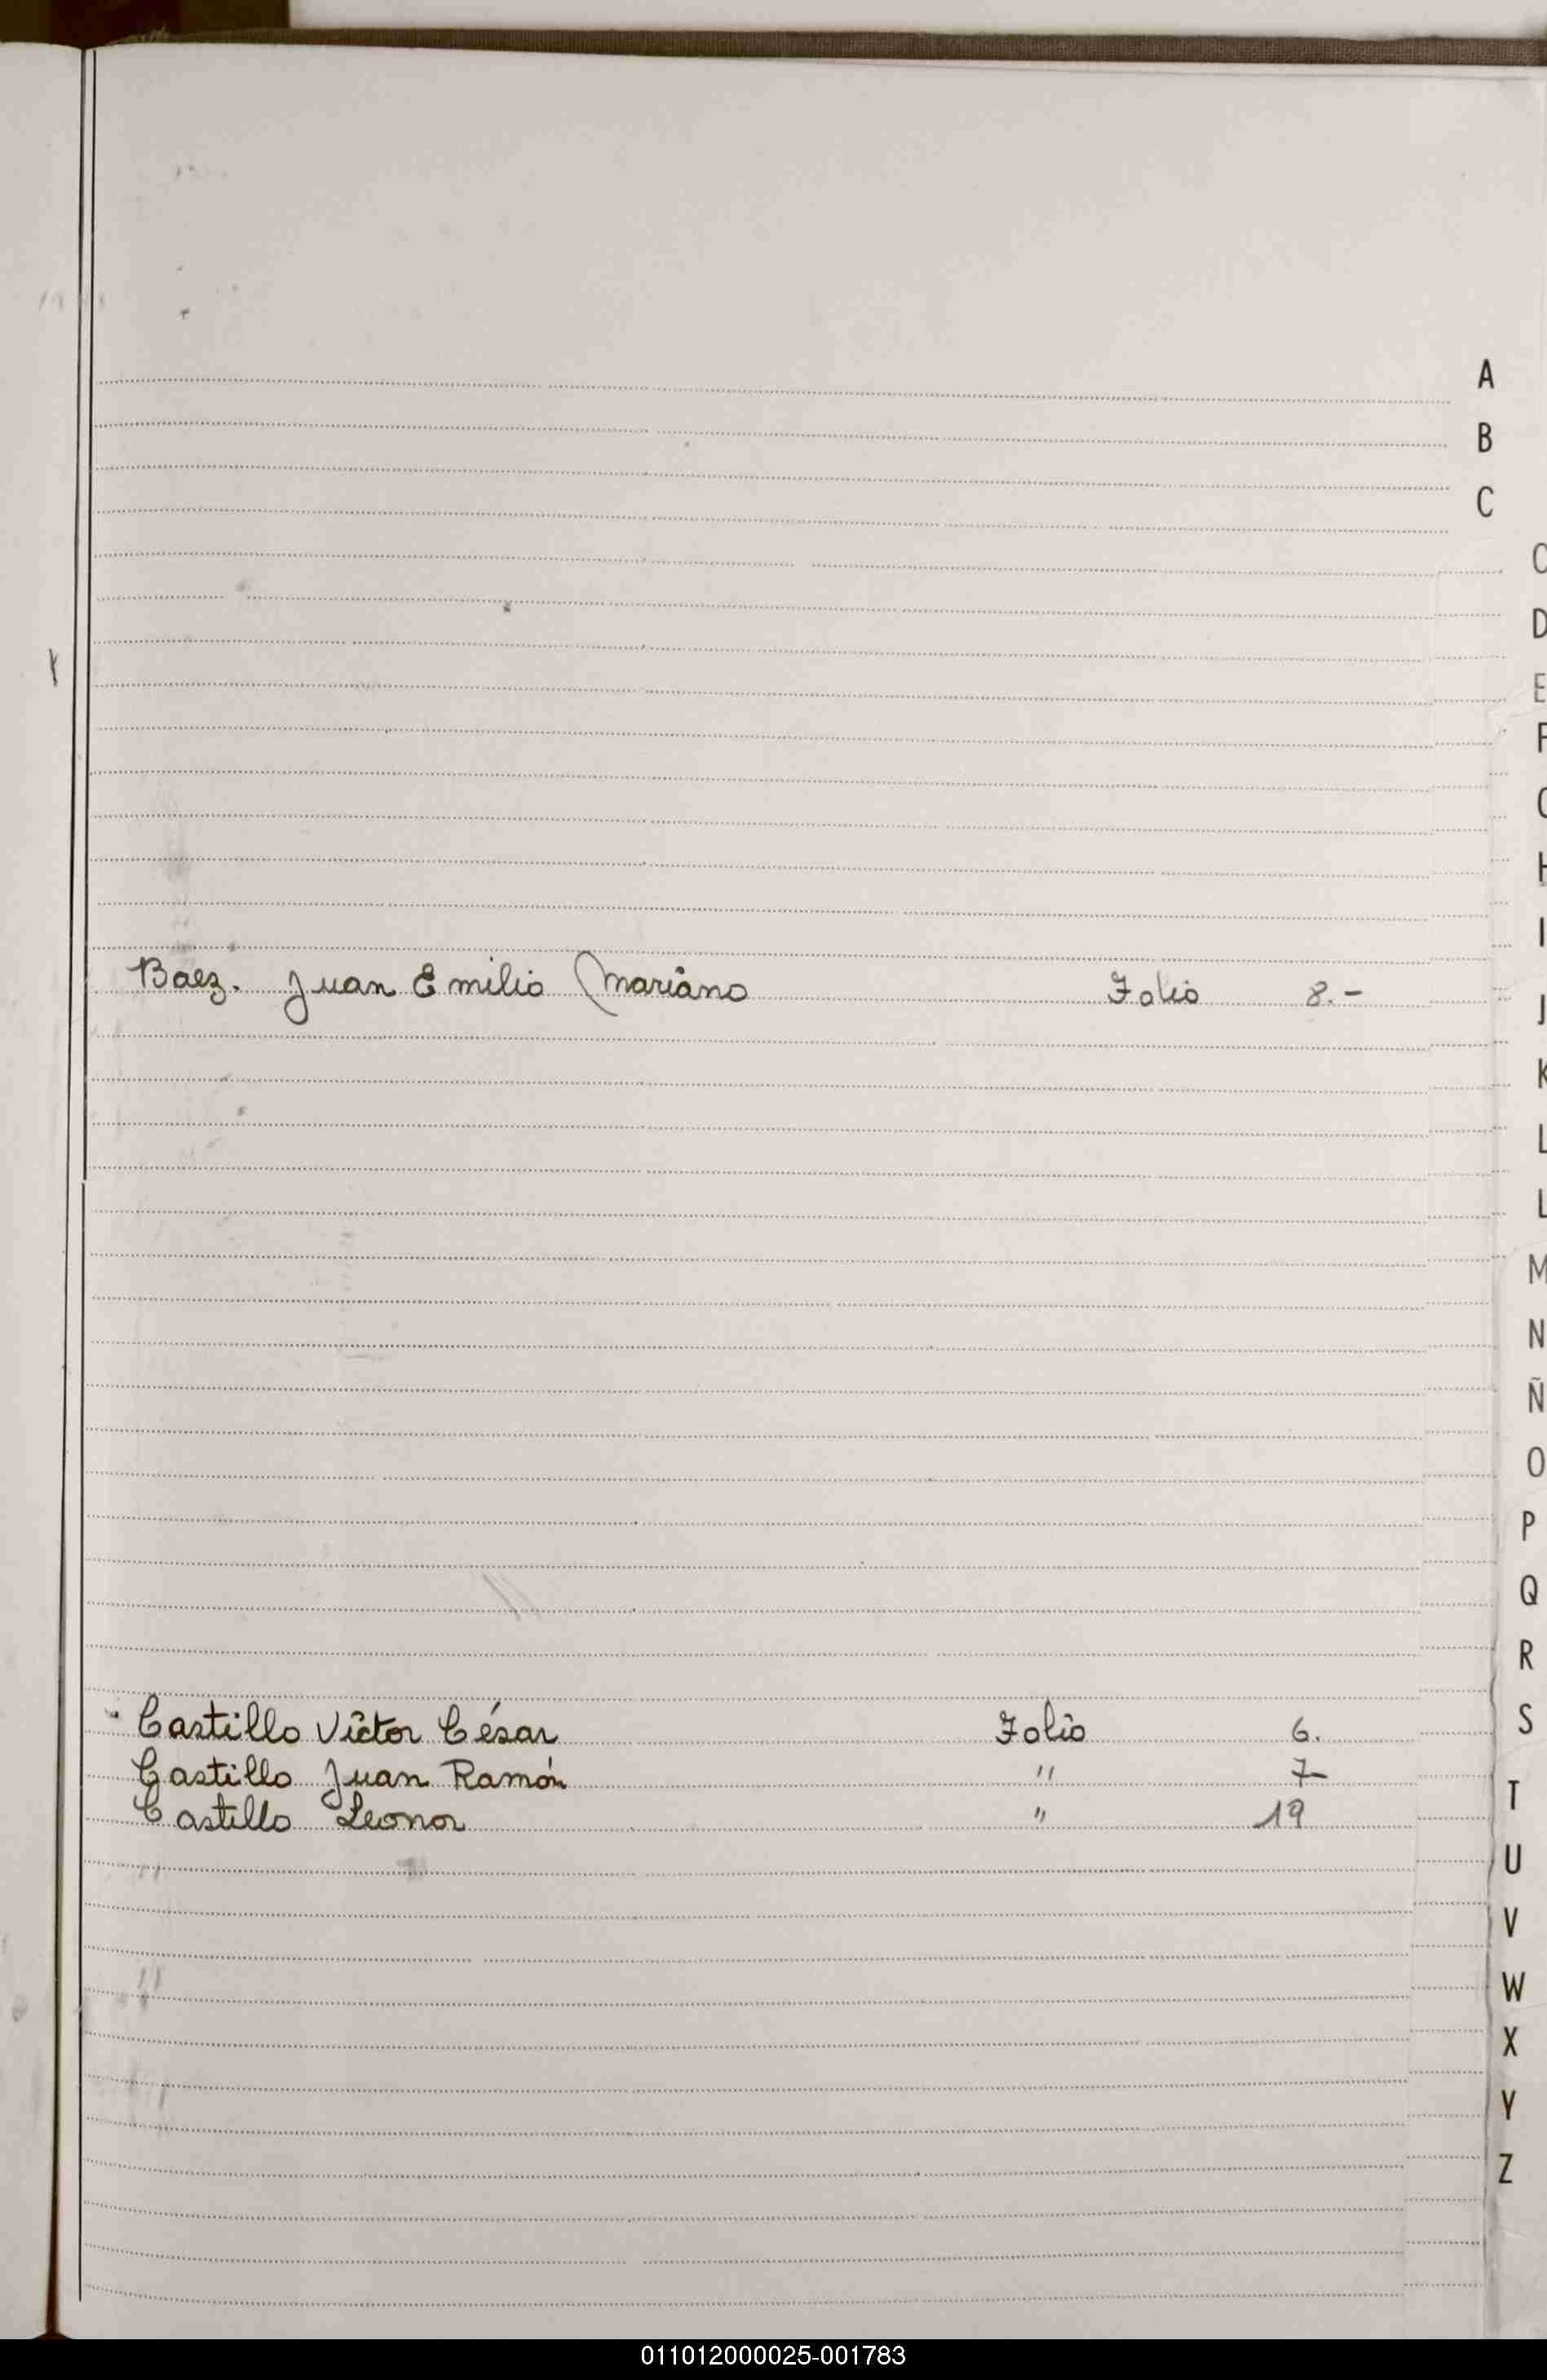 A
B
C
C
D
E
F
H
I
Baez. Juan Emilio Mariano Folio 8.-
J
K
L
L
M
N
Ñ
O
P
Q
R
S
Castillo Víctor César Folio 6.
Castillo Juan Ramón " 7-
T
Castillo Leonor " 19
U
V
W
X
Y
Z
011012000025-001783